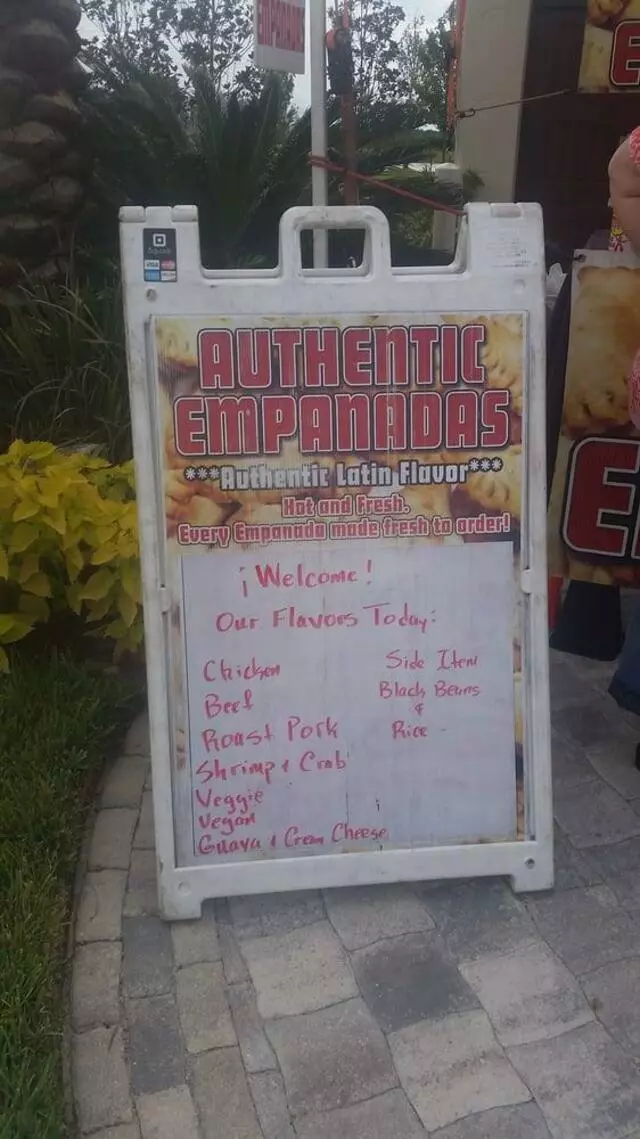 EMPANADAS
Square
VISA
AUTHENTIC
EMPANADAS
***Authentic Latin Flavor***
Hot and Fresh.
Every Empanada made fresh to order!
¡Welcome!
Our Flavors Today:
Chicken
Beef
Roast Pork
Shrimp & Crab
Veggie
Vegan
Guava & Cream Cheese
Side Item
Black Beans
&
Rice
E
E